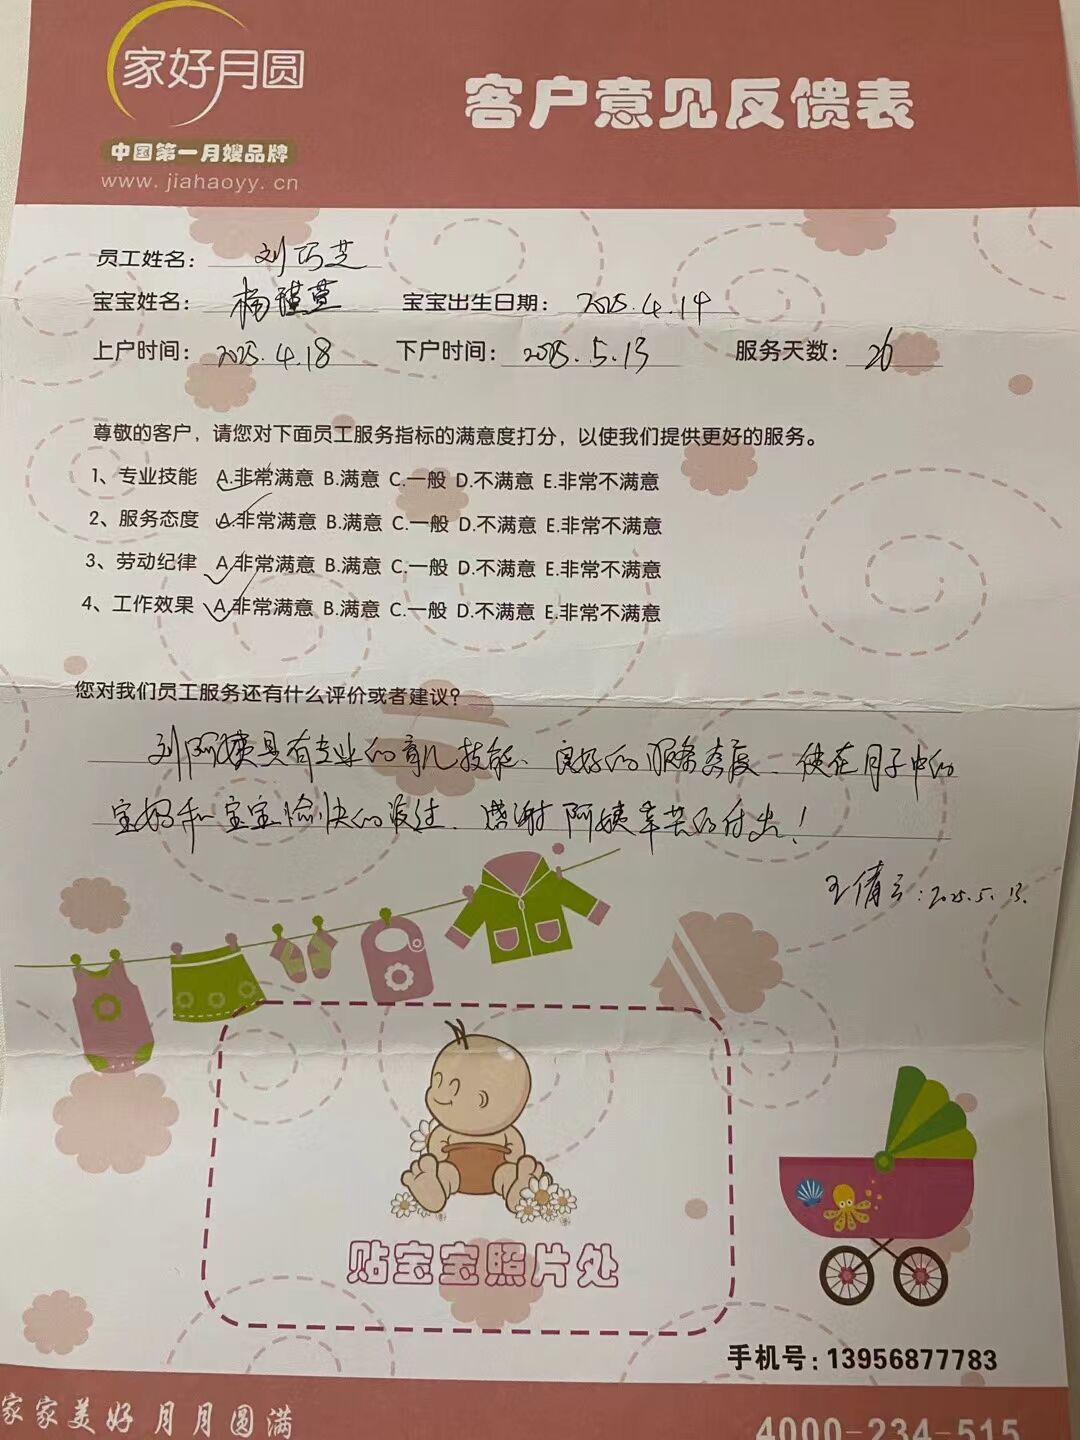 家好月圆
中国第一月嫂品牌
www.jiahaoyy.cn
客户意见反馈表
员工姓名：刘巧芝
宝宝姓名：杨瑾萱 宝宝出生日期：2025.4.14
上户时间：2025.4.18 下户时间：2025.5.13 服务天数：26
尊敬的客户，请您对下面员工服务指标的满意度打分，以使我们提供更好的服务。
1、专业技能 A.非常满意 B.满意 C.一般 D.不满意 E.非常不满意
2、服务态度 A.非常满意 B.满意 C.一般 D.不满意 E.非常不满意
3、劳动纪律 A.非常满意 B.满意 C.一般 D.不满意 E.非常不满意
4、工作效果 A.非常满意 B.满意 C.一般 D.不满意 E.非常不满意
您对我们员工服务还有什么评价或者建议？
刘阿姨具有专业的育儿技能、良好的服务态度、使在月子中的
宝妈和宝宝愉快的渡过．感谢阿姨辛苦的付出！
王倩云：2025.5.13.
贴宝宝照片处
手机号：13956877783
家家美好 月月圆满
4000-234-515